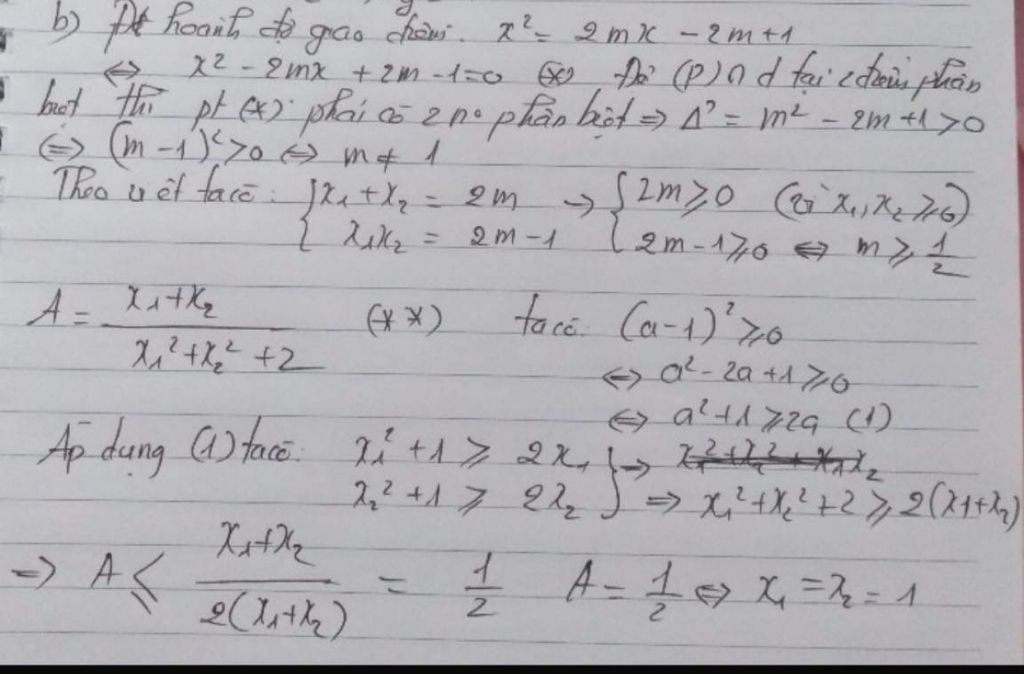 b) Pt hoành độ giao điểm. x² = 2mx - 2m+1
⇔ x² - 2mx + 2m - 1=0 (*) Để (P)∩d tại 2 điểm phân
biệt thì pt (*) phải có 2 n° phân biệt ⇒ Δ' = m² - 2m+1 >0
⇔ (m-1)² >0 ⇔ m ≠ 1
Theo viét ta có: { x₁+x₂ = 2m → { 2m ≥ 0 (vì x₁,x₂ ≥ 0)
x₁x₂ = 2m-1 2m-1 ≥ 0 ⇔ m ≥ 1/2
A = (x₁+x₂)/(x₁²+x₂²+2) (**) ta có: (a-1)² ≥ 0
⇔ a²-2a+1 ≥ 0
⇔ a²+1 ≥ 2a (1)
Áp dụng (1) ta có: x₁²+1 ≥ 2x₁ } →
x₂²+1 ≥ 2x₂ ⇒ x₁²+x₂²+2 ≥ 2(x₁+x₂)
⇒ A ≤ (x₁+x₂)/(2(x₁+x₂)) = 1/2 A = 1/2 ⇔ x₁ = x₂ = 1